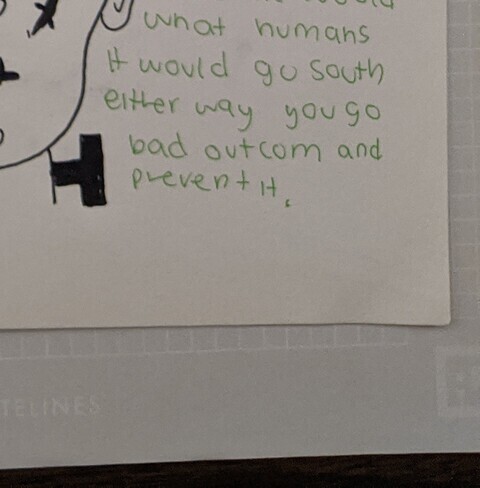 what humans
it would go south
either way you go
bad outcom and
prevent it.
TELINES